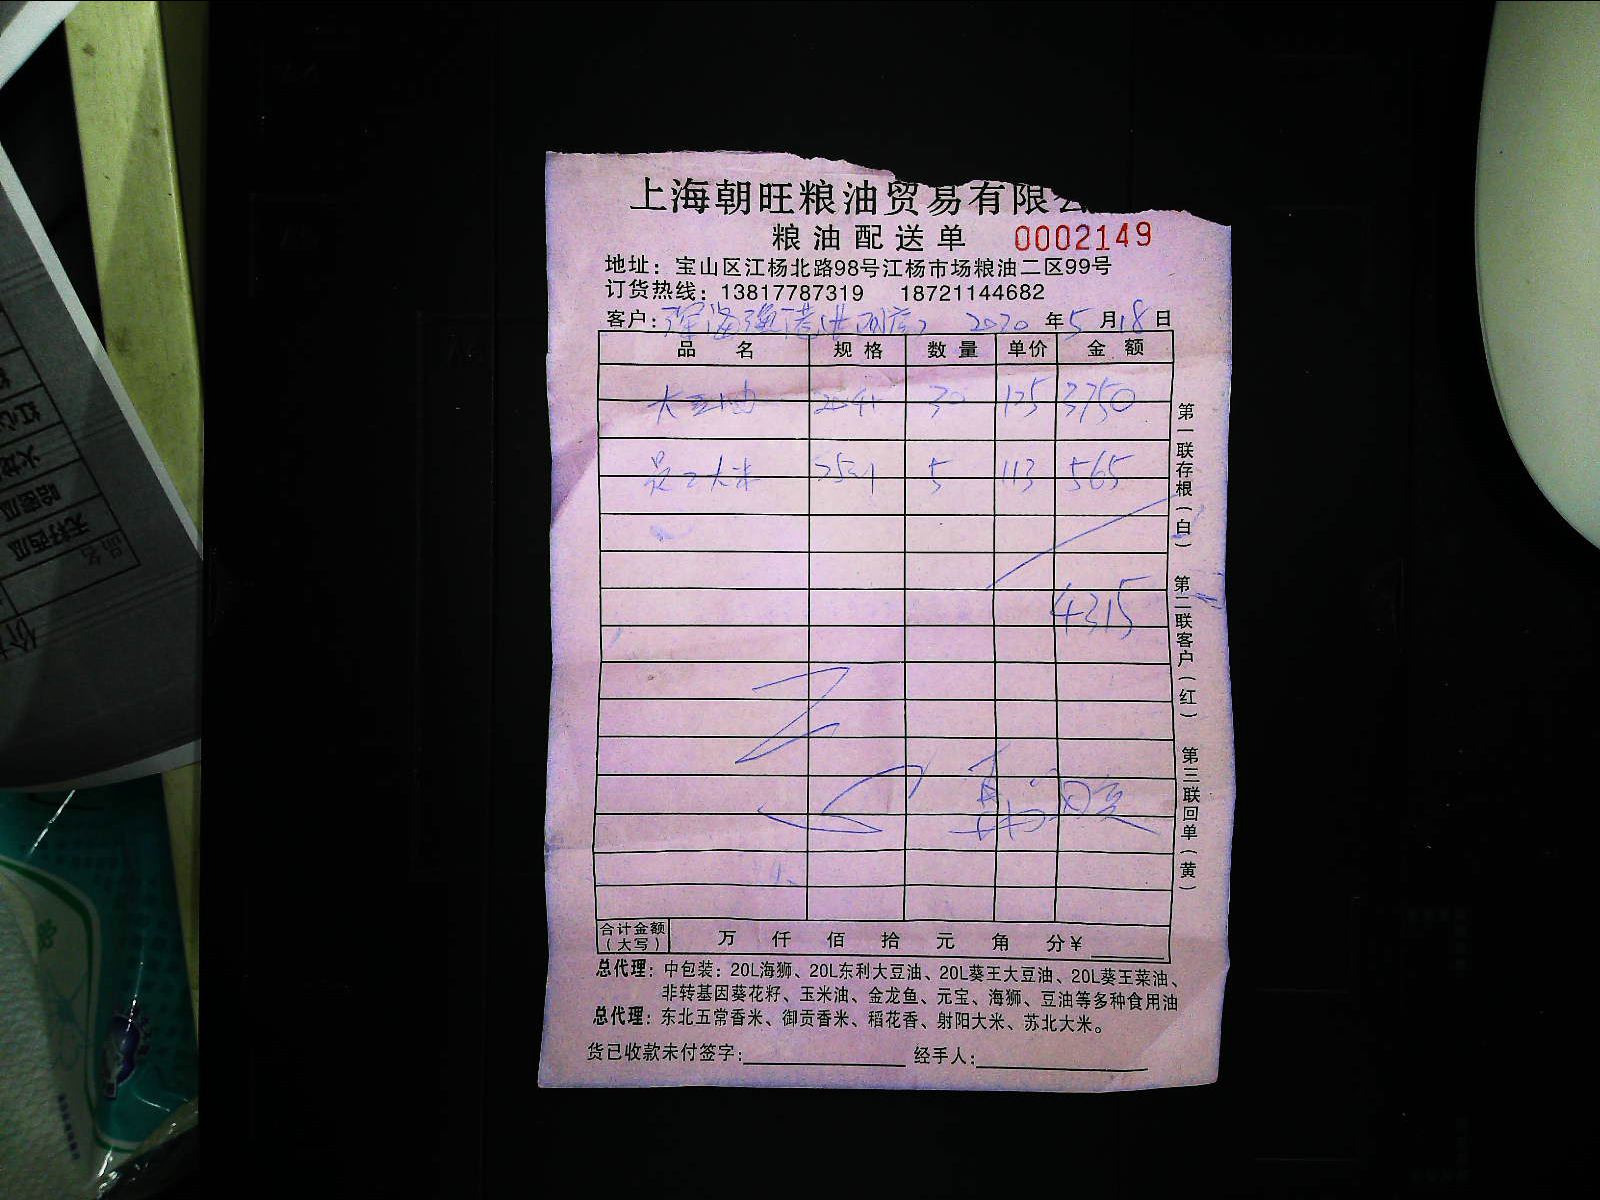 上海朝旺粮油贸易有限公
粮油配送单 0002149
地址：宝山区江杨北路98号江杨市场粮油二区99号
订货热线：13817787319 18721144682
客户： 2020年5月18日
品名 规格 数量 单价 金额
大豆油 30 125 3750
大米 5 113 565
4315
合计金额（大写） 万 仟 佰 拾 元 角 分¥
总代理：中包装：20L海狮、20L东利大豆油、20L葵王大豆油、20L葵王菜油、
非转基因葵花籽、玉米油、金龙鱼、元宝、海狮、豆油等多种食用油
总代理：东北五常香米、御贡香米、稻花香、射阳大米、苏北大米。
货已收款未付签字： 经手人：
第一联存根（白） 第二联客户（红） 第三联回单（黄）
品名
无籽西瓜
哈密瓜